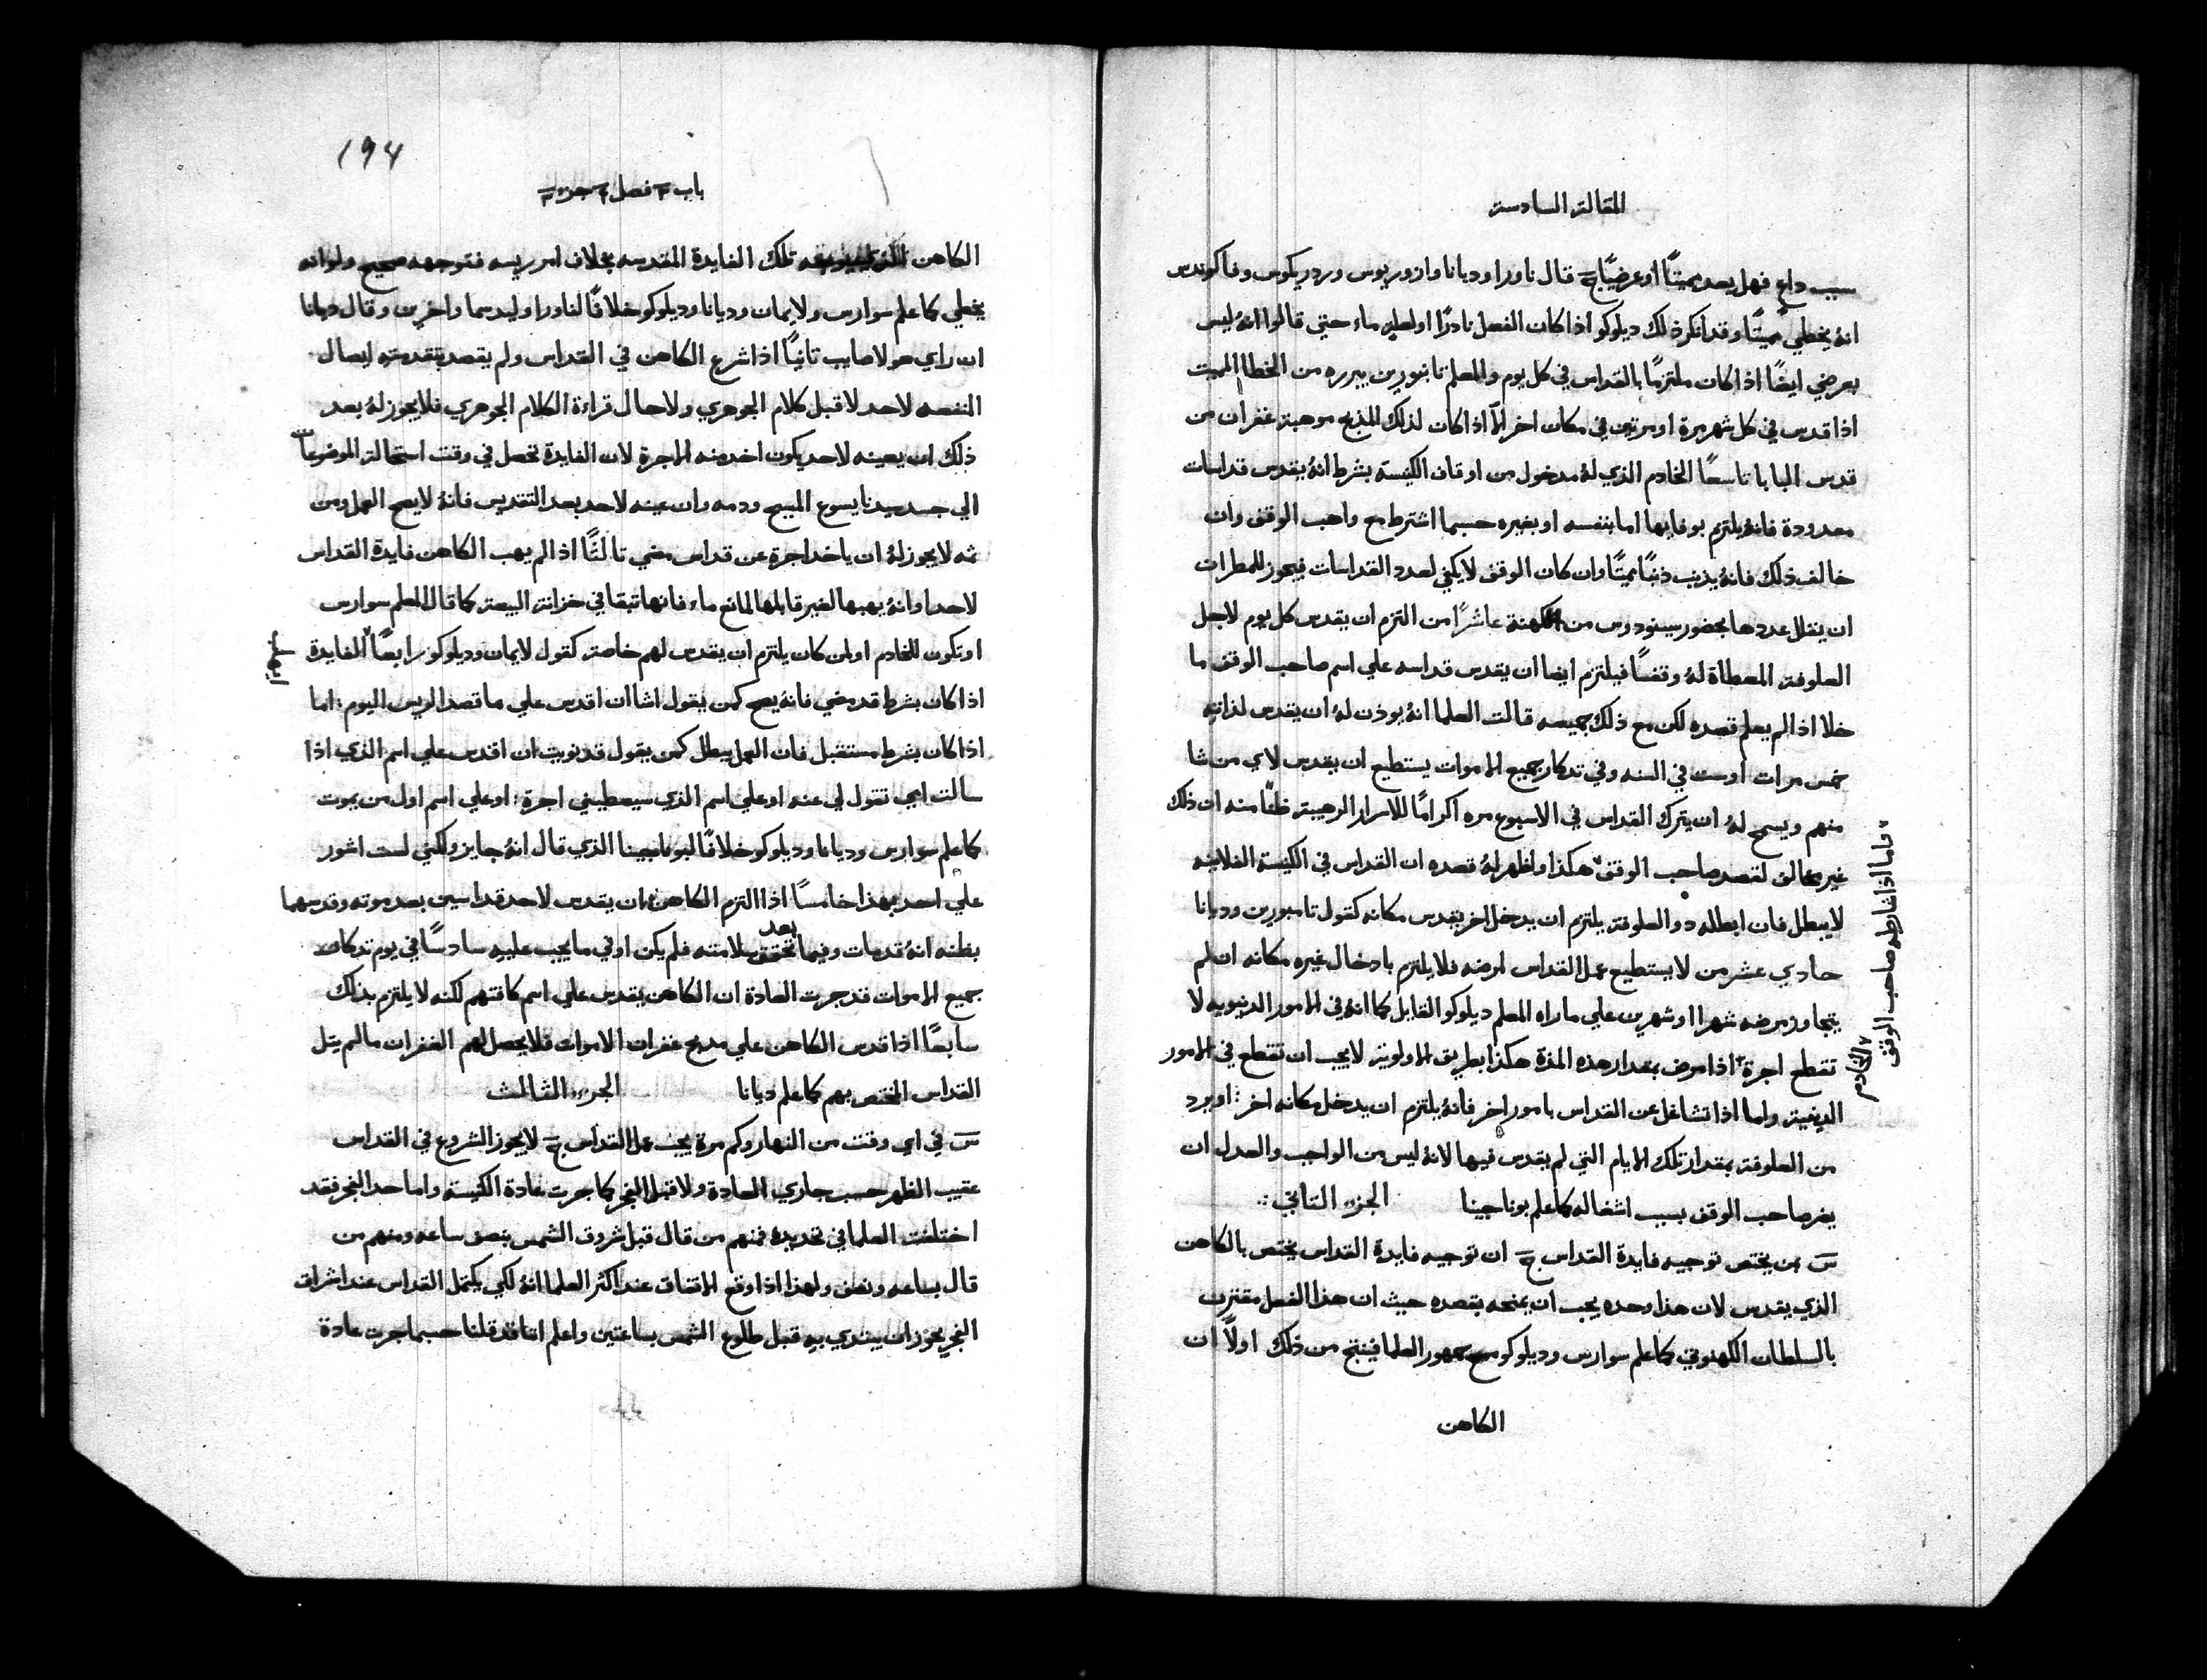 المقالة السادسة
سبب داعٍ فهل يعد مميتًا او عرضيًا ج قال ناورا وديانا وازوريوس وردريكوس وفاكوندس
انهُ يخطي مميتًا وقد انكر ذلك ديلوكو اذا كان الفعل نادرًا او لعلةٍ ماء حتي قالوا انهُ ليس
بعرضي ايضًا اذا كان ملتزمًا بالقداس في كل يوم والمعلم تانبورين يبرره من الخطا المميت
اذا قدس في كل شهر مرة او مرتين في مكان اخر الّا اذا كان لذلك المذبح موهبة غفران من
قدس البابا تاسعًا الخادم الذي لهُ مدخول من اوقاف الكنيسة بشرط انهُ يقدس قداسات
معدودة فانهُ يلتزم بوفايها اما بنفسه او بغيره حسبما اشترط مع واهب الوقف وان
خالف ذلك فانهُ يذنب ذنبًا مميتًا وان كان الوقف لا يكفي لعدد القداسات فيجوز للمطران
ان يقلل عددها بحضور سينودوس من الكهنة عاشرًا من التزم ان يقدس كل يوم لاجل
العلوفة المعطاة لهُ وقفًا فيلتزم ايضا ان يقدس قداسه علي اسم صاحب الوقف ما
خلا اذا لم يعلم قصده لكن مع ذلك جميعه قالت العلما انهُ يوذن لهُ ان يقدس لذاته
خمس مرات او ست في السنه وفي تدكار جميع الاموات يستطيع ان يقدس لاي من شا
منهم ويسمح لهُ ان يترك القداس في الاسبوع مره اكرامًا للاسرار الرهيبة ظنًا منه ان ذلك
غير مخالف لقصد صاحب الوقف هكذا ولو ظهر لهُ قصده ان القداس في الكنيسة الفلانيه
لا يبطل فان ابطله دو العلوفة يلتزم ان يدخل اخر يقدس مكانه كقول تامبورين وديانا
حادي عشر من لا يستطيع عمل القداس لمرضه فلا يلتزم بادخال غيره مكانه ان لم
يتجاوز مرضه شهرا او شهرين علي ما راه المعلم ديلوكو القايل كما انهُ في الامور الدنيويه لا
تقطع اجرة اذا مرض بمقدار هذه المدة هكذا بطريق الاولوية لا يجب ان تقطع في الامور
الدينية واما اذا تشاغل عن القداس بامور اخر فانهُ يلتزم ان يدخل مكانه اخر : او يرد
من العلوفة بمقدار تلك الايام التي لم يقدس فيها لانهُ ليس من الواجب والعدل ان
يضر صاحب الوقف بسبب اشغاله كما علم بوناجينا الجزء التاني :.
س بمن يختص توجيه فايدة القداس ج ان توجيه فايدة القداس يختص بالكاهن
الذي يقدس لان هذا وحده يجب ان يمنحه بقصده حيث ان هذا الفعل مقترن
بالسلطان الكهنوتي كما علم سوارس وديلوكو مع جمهور العلما فينتج من ذلك اولاً ان
الكاهن
واما اذا شارطه صاحب الوقف
الخادم
194
باب ٣ فصل ٤ جزء ٣
الكاهن تلك الفايدة المقدسه بخلاف امر ريسه فتوجهه صحيح ولو انه
يخطي كما علم سوارس ولايمان وديانا وديلوكو خلافًا لناورا وليدسما واخرين وقال ديانا
ان راي هولا صايب تانيًا اذا شرع الكاهن في القداس ولم يقصد بتقدمته ايصال
المنفعه لاحد لا قبل كلام الجوهري ولا حال قراءة الكلام الجوهري فلا يجوز لهُ بعد
ذلك ان يعينه لاحد يكون اخد منه الاجرة لان الفايدة تحصل في وقت استحالة الموضوعات
الي جسد سيدنا يسوع المسيح ودمه وان عينه لاحد بعد التقديس فانهُ لا يصح العمل ومن
ثمه لا يجوز لهُ ان ياخد اجرة عن قداس مضي تالثًا اذا لم يهب الكاهن فايدة القداس
لاحد او انهُ يهبها لغير قابلها لمانع ماء فانها تبقا في خزانة البيعة كما قال المعلم سوارس
او تكون للخادم او لمن كان يلتزم ان يقدس لهم خاصة كقول لايمان وديلوكو رابعًا الفايدة
اذا كان بشرط قد مضي فانهُ يصح كمن يقول اشا ان اقدس علي ما قصد الريس اليوم : اما
اذا كان بشرط مستقبل فان العمل يبطل كمن يقول قد نويت ان اقدس علي اسم الذي اذا
سالت ابي تقول لي عنه او علي اسم الذي سيعطيني اجرة : او علي اسم اول من يموت
كما علم سوارس وديانا وديلوكو خلافًا لبوناجينا الذي قال انهُ جايز ولكني لست اشور
علي احد بهذا خامسًا اذا التزم الكاهن ان يقدس لاحد قداسين بعد موته وقدسهما
بظنه انهُ قد مات وفيما بعد تحقق سلامته فلم يكن اوفي ما يجب عليه سادسًا في يوم تدكار
جميع الاموات قد جرت العادة ان الكاهن يقدس علي اسم كافتهم لكنه لا يلتزم بذلك
سابعًا اذا قدس الكاهن علي مدبح غفران الاموات فلا يحصل لهم الغفران ما لم يتل
القداس المختص بهم كما علم ديانا الجزء الثالث
س في اي وقت من النهار وكم مرة يجب عمل القداس ج لا يجوز الشروع في القداس
عقيب الظهر حسب جاري العادة ولا قبل الفجر كما جرت عادة الكنيسة واما حد الفجر فقد
اختلفت العلما في تحديده فمنهم من قال قبل شروق الشمس بنصف ساعه ومنهم من
قال بساعه ونصف ولهذا اذا وقع الاتفاق عند اكثر العلما انهُ لكي يكتمل القداس عند اشراق
الفجر يجوز ان يبتدي به قبل طلوع الشمس بساعتين واعلم اننا قد قلنا حسبما جرت عادة